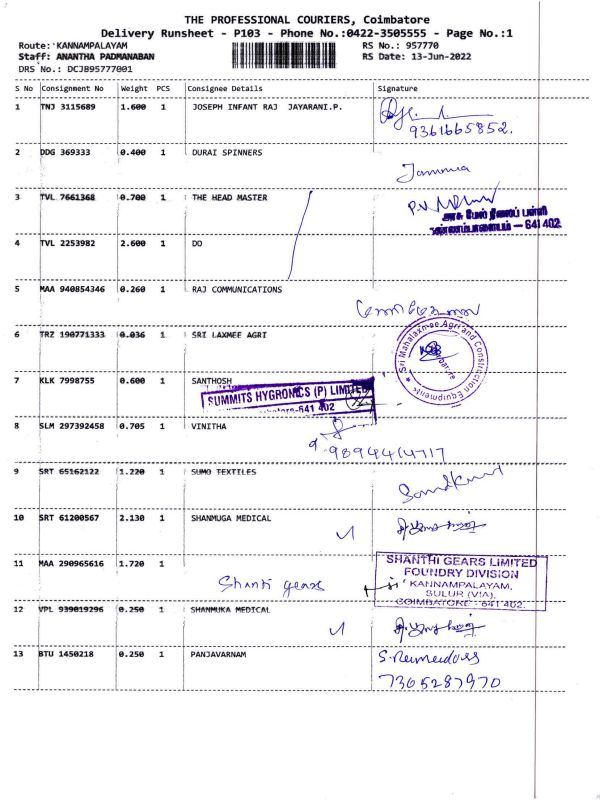 THE PROFESSIONAL COURIERS, Coimbatore
Delivery Runsheet - P103 - Phone No.:0422-3505555 - Page No.:1
Route: KANNAMPALAYAM RS No.: 957770
Staff: ANANTHA PADMANABAN RS Date: 13-Jun-2022
DRS No.: DCJB95777001
S No Consignment No Weight PCS Consignee Details Signature
1 TNJ 3115689 1.600 1 JOSEPH INFANT RAJ JAYARANI.P.
9361665852.
2 DDG 369333 0.400 1 DURAI SPINNERS
3 TVL 7661368 0.700 1 THE HEAD MASTER
அரசு மேல் நிலைப் பள்ளி
641 402
4 TVL 2253982 2.600 1 DO
5 MAA 940854346 0.260 1 RAJ COMMUNICATIONS
6 TRZ 190771333 0.036 1 SRI LAXMEE AGRI
Sri Mahalaxmee Agri and Construction Equipments
7 KLK 7998755 0.600 1 SANTHOSH
SUMMITS HYGRONICS (P) LIMITED
641 402
8 SLM 297392458 0.705 1 VINITHA
9894414717
9 SRT 65162122 1.220 1 SUMO TEXTILES
10 SRT 61200567 2.130 1 SHANMUGA MEDICAL
11 MAA 290965616 1.720 1
Shanti gears
SHANTHI GEARS LIMITED
FOUNDRY DIVISION
KANNAMPALAYAM,
SULUR (VIA),
COIMBATORE - 641 402.
12 VPL 939019296 0.250 1 SHANMUKA MEDICAL
13 BTU 1450218 0.250 1 PANJAVARNAM
7365287970